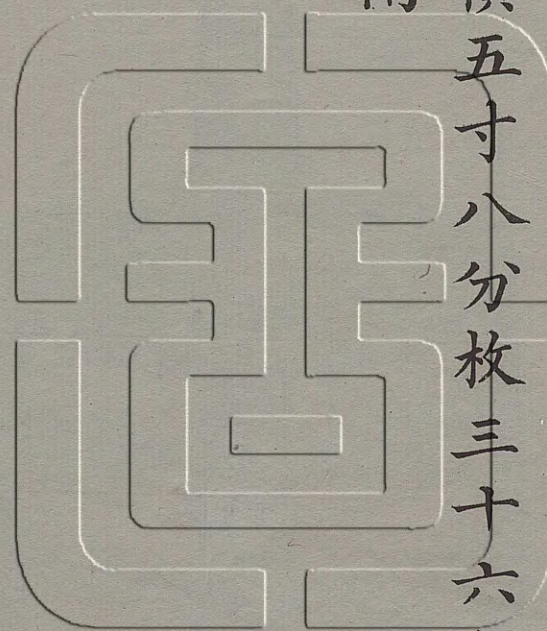 五寸八分枚三十六